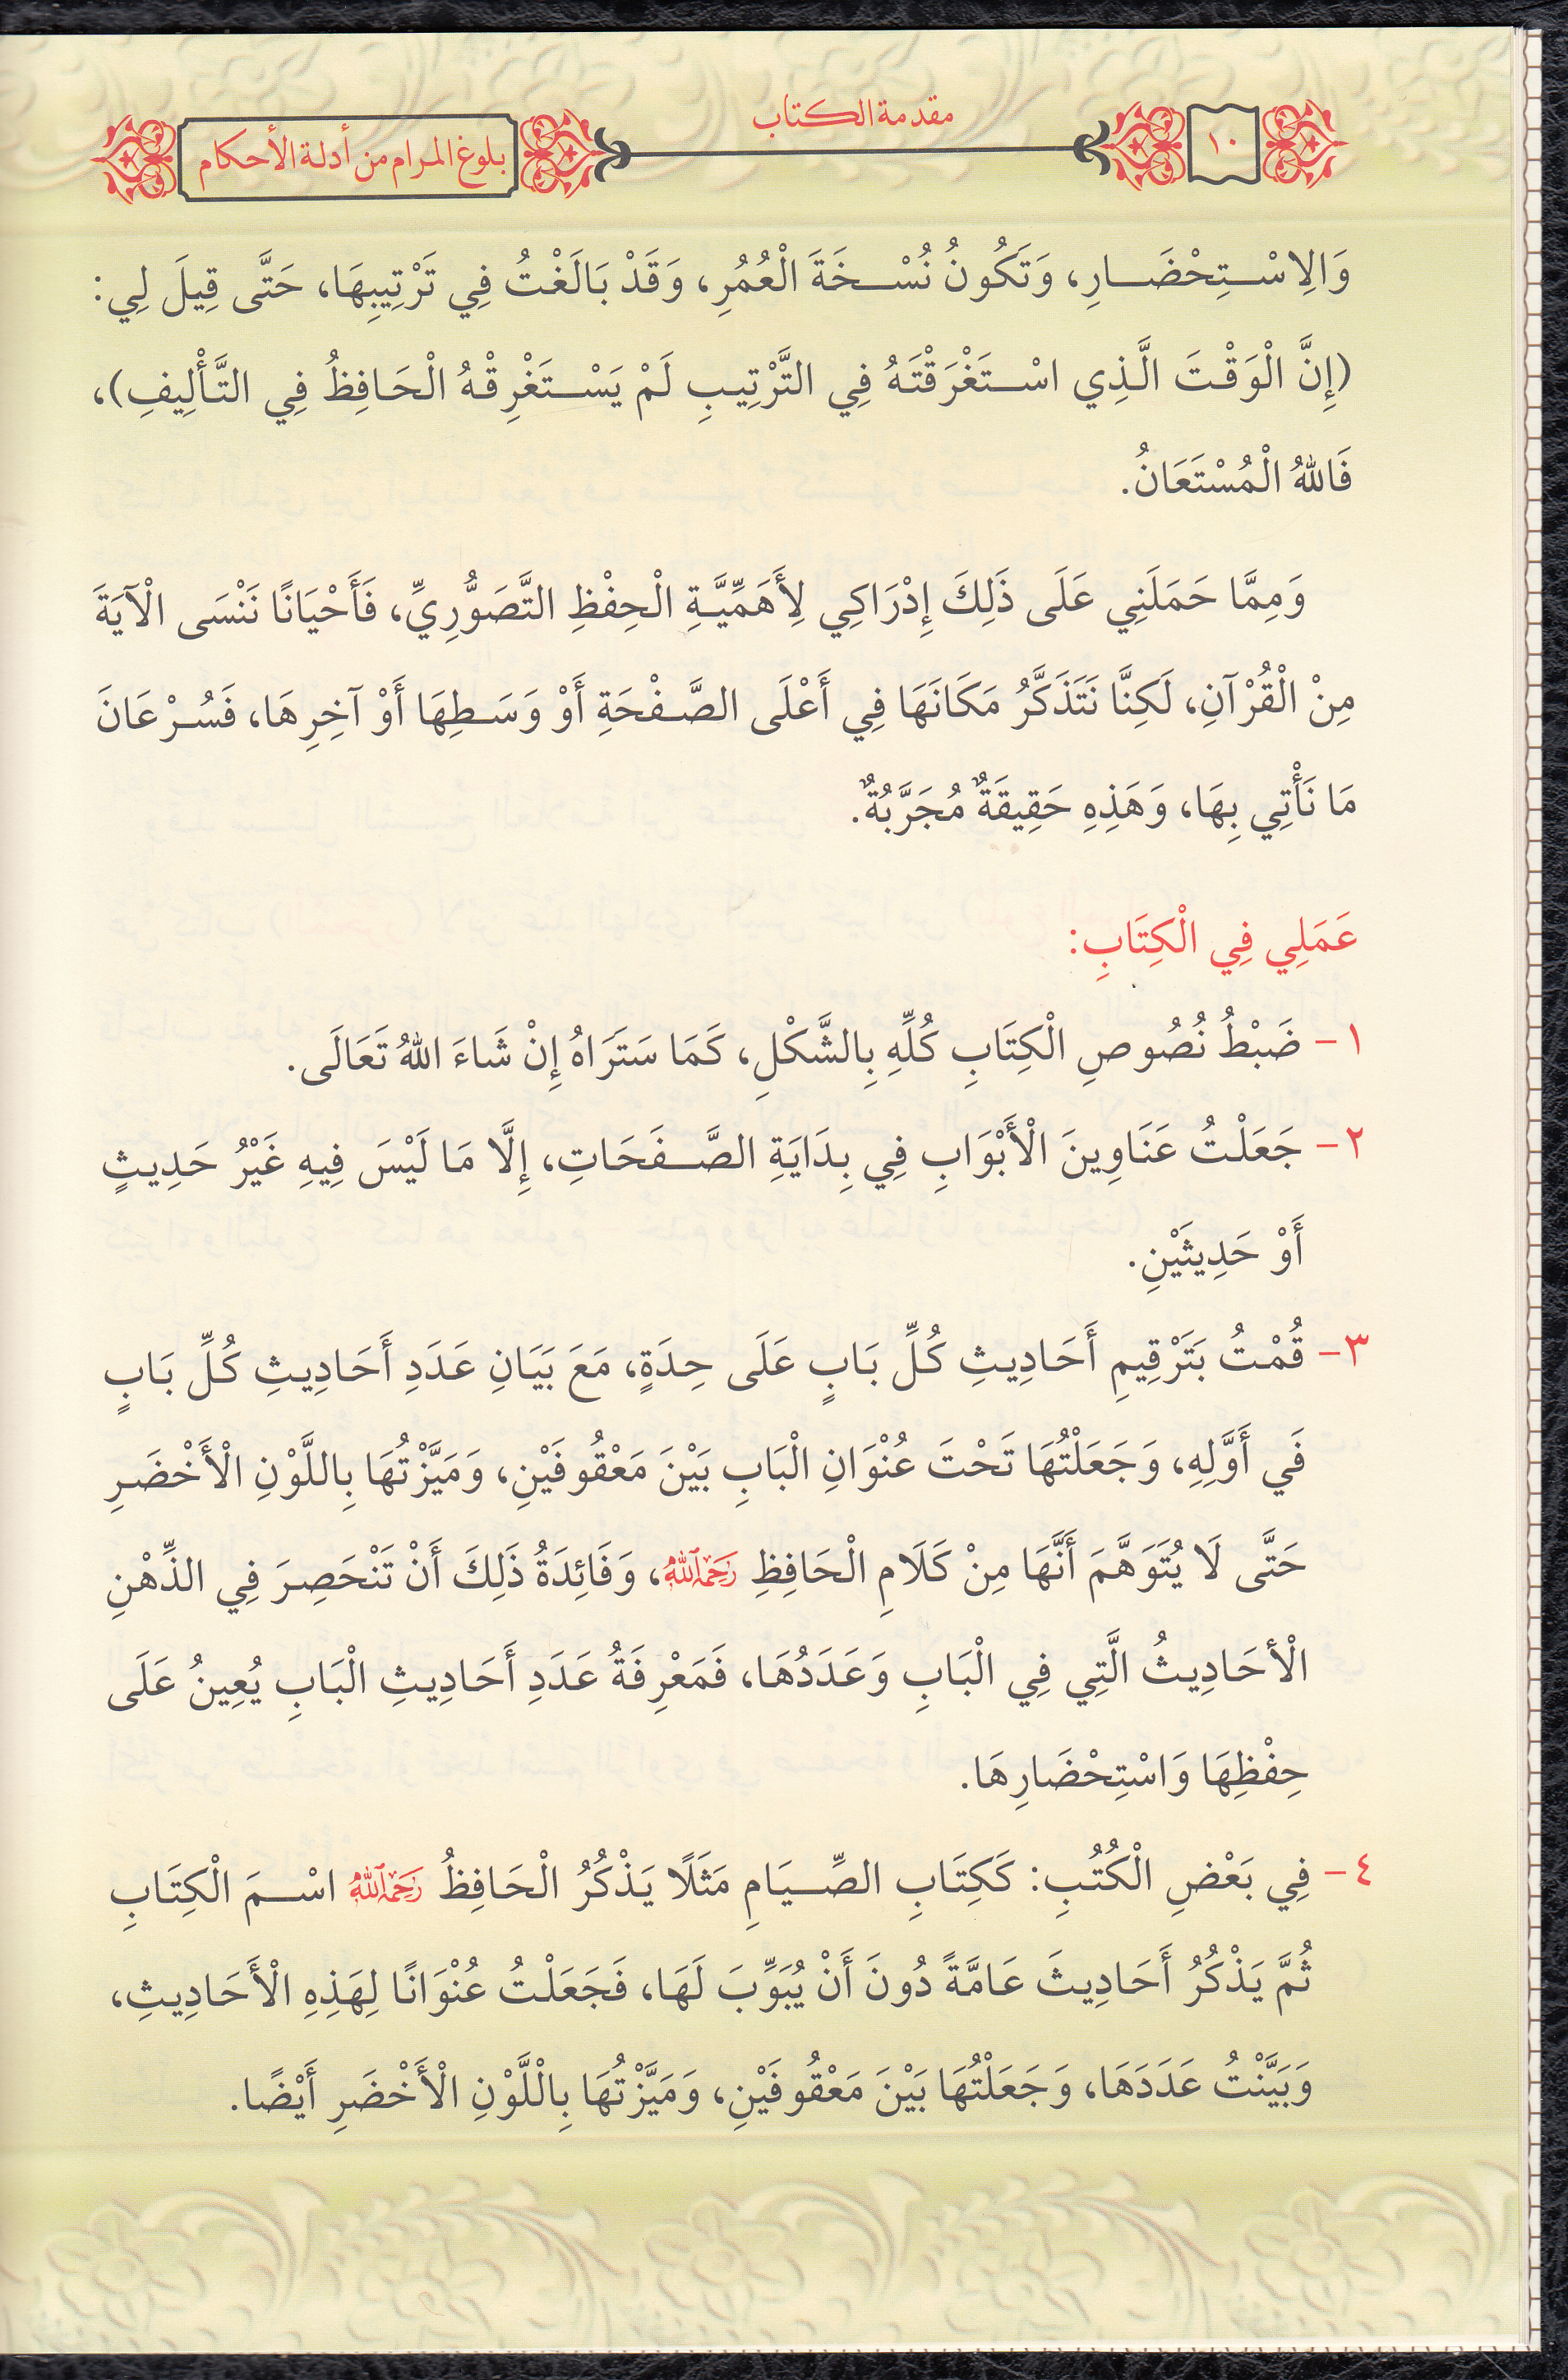 ١٠
مقدمة الكتاب
بلوغ المرام من أدلة الأحكام
وَالِاسْتِحْضَارِ، وَتَكُونُ نُسْخَةَ الْعُمُرِ، وَقَدْ بَالَغْتُ فِي تَرْتِيبِهَا، حَتَّى قِيلَ لِي:
(إِنَّ الْوَقْتَ الَّذِي اسْتَغْرَقْتَهُ فِي التَّرْتِيبِ لَمْ يَسْتَغْرِقْهُ الْحَافِظُ فِي التَّأْلِيفِ)،
فَاللهُ الْمُسْتَعَانُ.
وَمِمَّا حَمَلَنِي عَلَى ذَلِكَ إِدْرَاكِي لِأَهَمِّيَّةِ الْحِفْظِ التَّصَوُّرِيِّ، فَأَحْيَانًا نَنْسَى الْآيَةَ
مِنْ الْقُرْآنِ، لَكِنَّا نَتَذَكَّرُ مَكَانَهَا فِي أَعْلَى الصَّفْحَةِ أَوْ وَسَطِهَا أَوْ آخِرِهَا، فَسُرْعَانَ
مَا نَأْتِي بِهَا، وَهَذِهِ حَقِيقَةٌ مُجَرَّبُةٌ.
عَمَلِي فِي الْكِتَابِ:
١- ضَبْطُ نُصُوصِ الْكِتَابِ كُلِّهِ بِالشَّكْلِ، كَمَا سَتَرَاهُ إِنْ شَاءَ اللهُ تَعَالَى.
٢- جَعَلْتُ عَنَاوِينَ الْأَبْوَابِ فِي بِدَايَةِ الصَّفَحَاتِ، إِلَّا مَا لَيْسَ فِيهِ غَيْرُ حَدِيثٍ
أَوْ حَدِيثَيْنِ.
٣- قُمْتُ بَتَرْقِيمِ أَحَادِيثِ كُلِّ بَابٍ عَلَى حِدَةٍ، مَعَ بَيَانِ عَدَدِ أَحَادِيثِ كُلِّ بَابٍ
فَي أَوَّلِهِ، وَجَعَلْتُهَا تَحْتَ عُنْوَانِ الْبَابِ بَيْنَ مَعْقُوفَيْنِ، وَمَيَّزْتُهَا بِاللَّوْنِ الْأَخْضَرِ
حَتَّى لَا يُتَوَهَّمَ أَنَّهَا مِنْ كَلَامِ الْحَافِظِ رَحِمَهُ اللَّهُ، وَفَائِدَةُ ذَلِكَ أَنْ تَنْحَصِرَ فِي الذِّهْنِ
الْأحَادِيثُ الَّتِي فِي الْبَابِ وَعَدَدُهَا، فَمَعْرِفَةُ عَدَدِ أَحَادِيثِ الْبَابِ يُعِينُ عَلَى
حِفْظِهَا وَاسْتِحْضَارِهَا.
٤- فِي بَعْضِ الْكُتُبِ: كَكِتَابِ الصِّيَامِ مَثَلًا يَذْكُرُ الْحَافِظُ رَحِمَهُ اللَّهُ اسْمَ الْكِتَابِ
ثُمَّ يَذْكُرُ أَحَادِيثَ عَامَّةً دُونَ أَنْ يُبَوِّبَ لَهَا، فَجَعَلْتُ عُنْوَانًا لِهَذِهِ الْأَحَادِيثِ،
وَبَيَّنْتُ عَدَدَهَا، وَجَعَلْتُهَا بَيْنَ مَعْقُوفَيْنِ، وَمَيَّزْتُهَا بِالْلَّوْنِ الْأَخْضَرِ أَيْضًا.